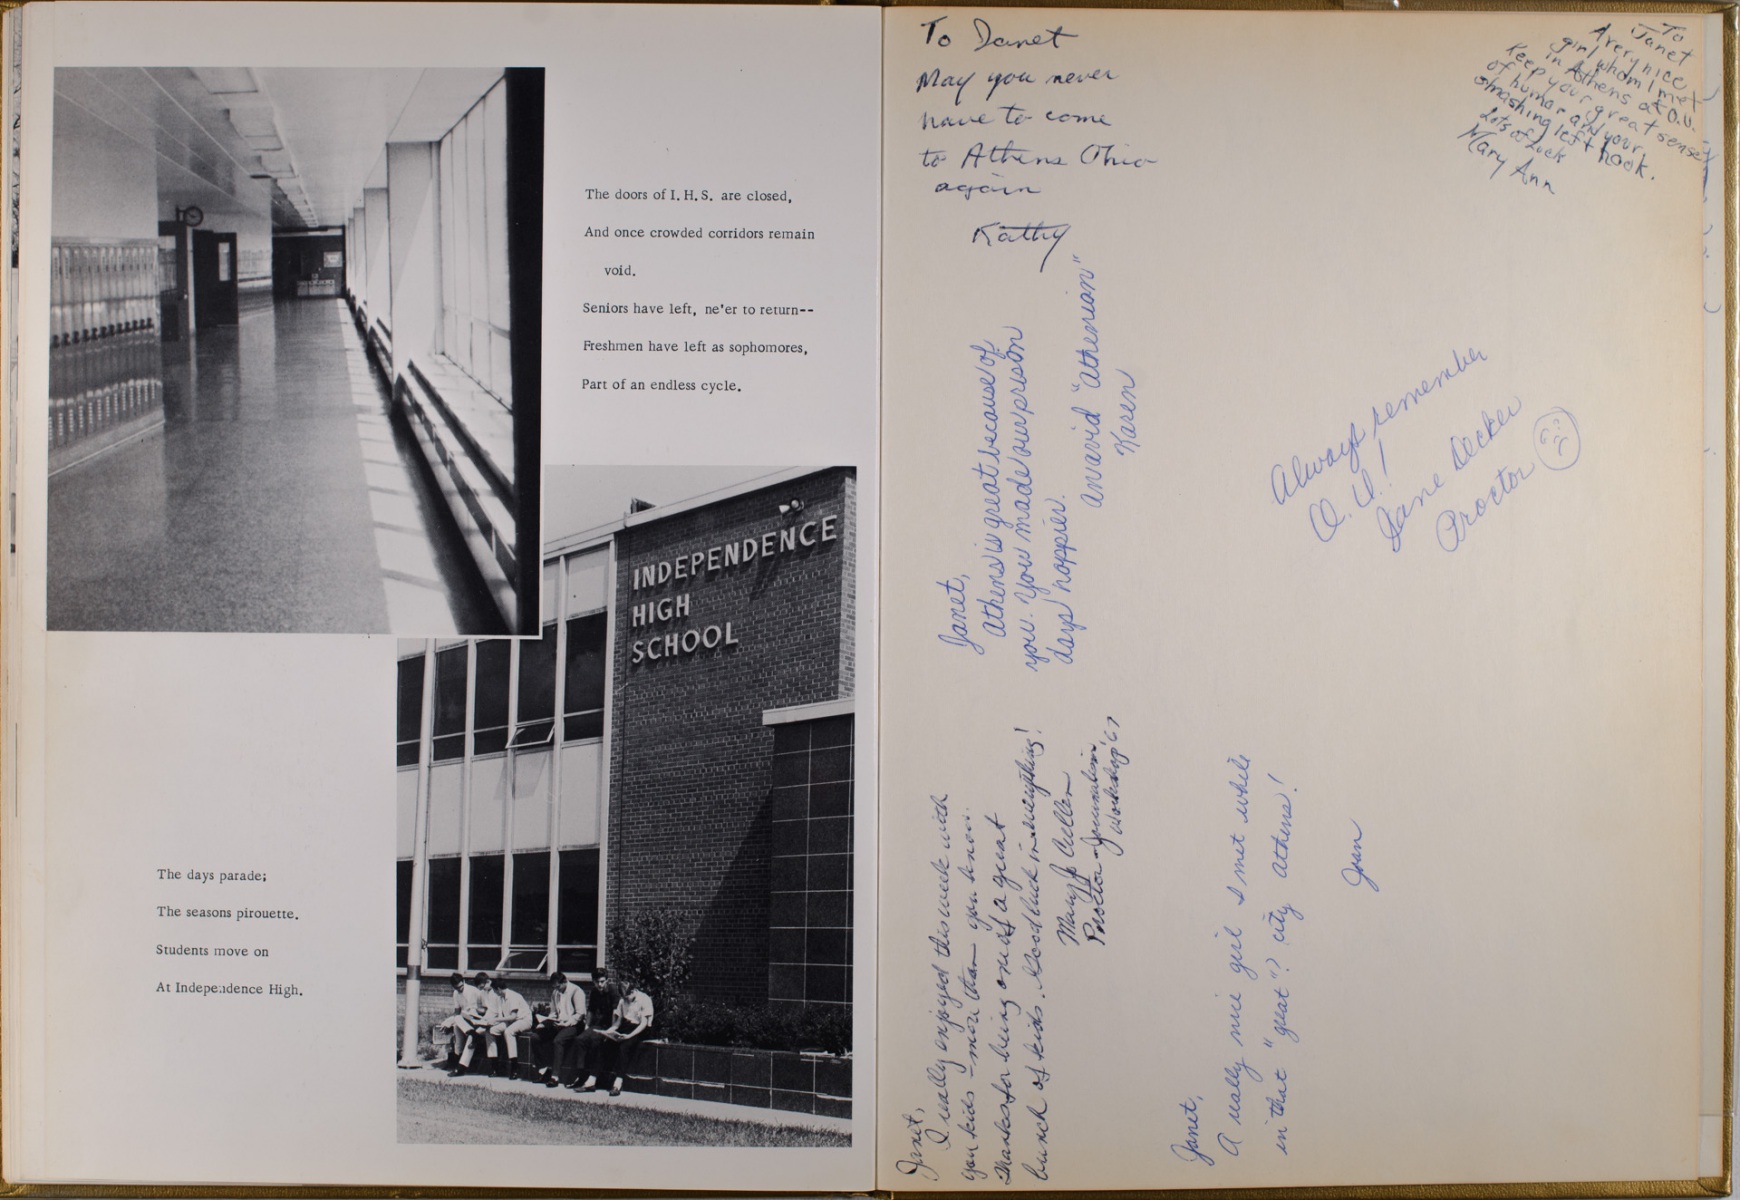 The doors of I. H. S. are closed,
And once crowded corridors remain
void.
Seniors have left, ne'er to return--
Freshmen have left as sophomores,
Part of an endless cycle.
INDEPENDENCE
HIGH
SCHOOL
The days parade;
The seasons pirouette.
Students move on
At Independence High.
To Janet
May you never
have to come
to Athens Ohio
again
Kathy
To
Janet
A very nice
girl whom I met
in Athens at O.U.
Keep your great sense
of humor and your
smashing left hook.
Lots of Luck
Mary Ann
Janet,
Athens is great because of
you. You made our prison
days happier.
an avid "Athenian"
Karen
Always remember
O.U.!
Jane Decker
Proctor
Janet,
I really enjoyed this week with
you kids - more than you know.
Thanks for being one of a great
bunch of kids. Good luck in everything!
Mary Jo Cullen
Proctor - Journalism
Workshop '67
Janet,
A really nice girl I met while
in that "great"? city Athens!
Jan